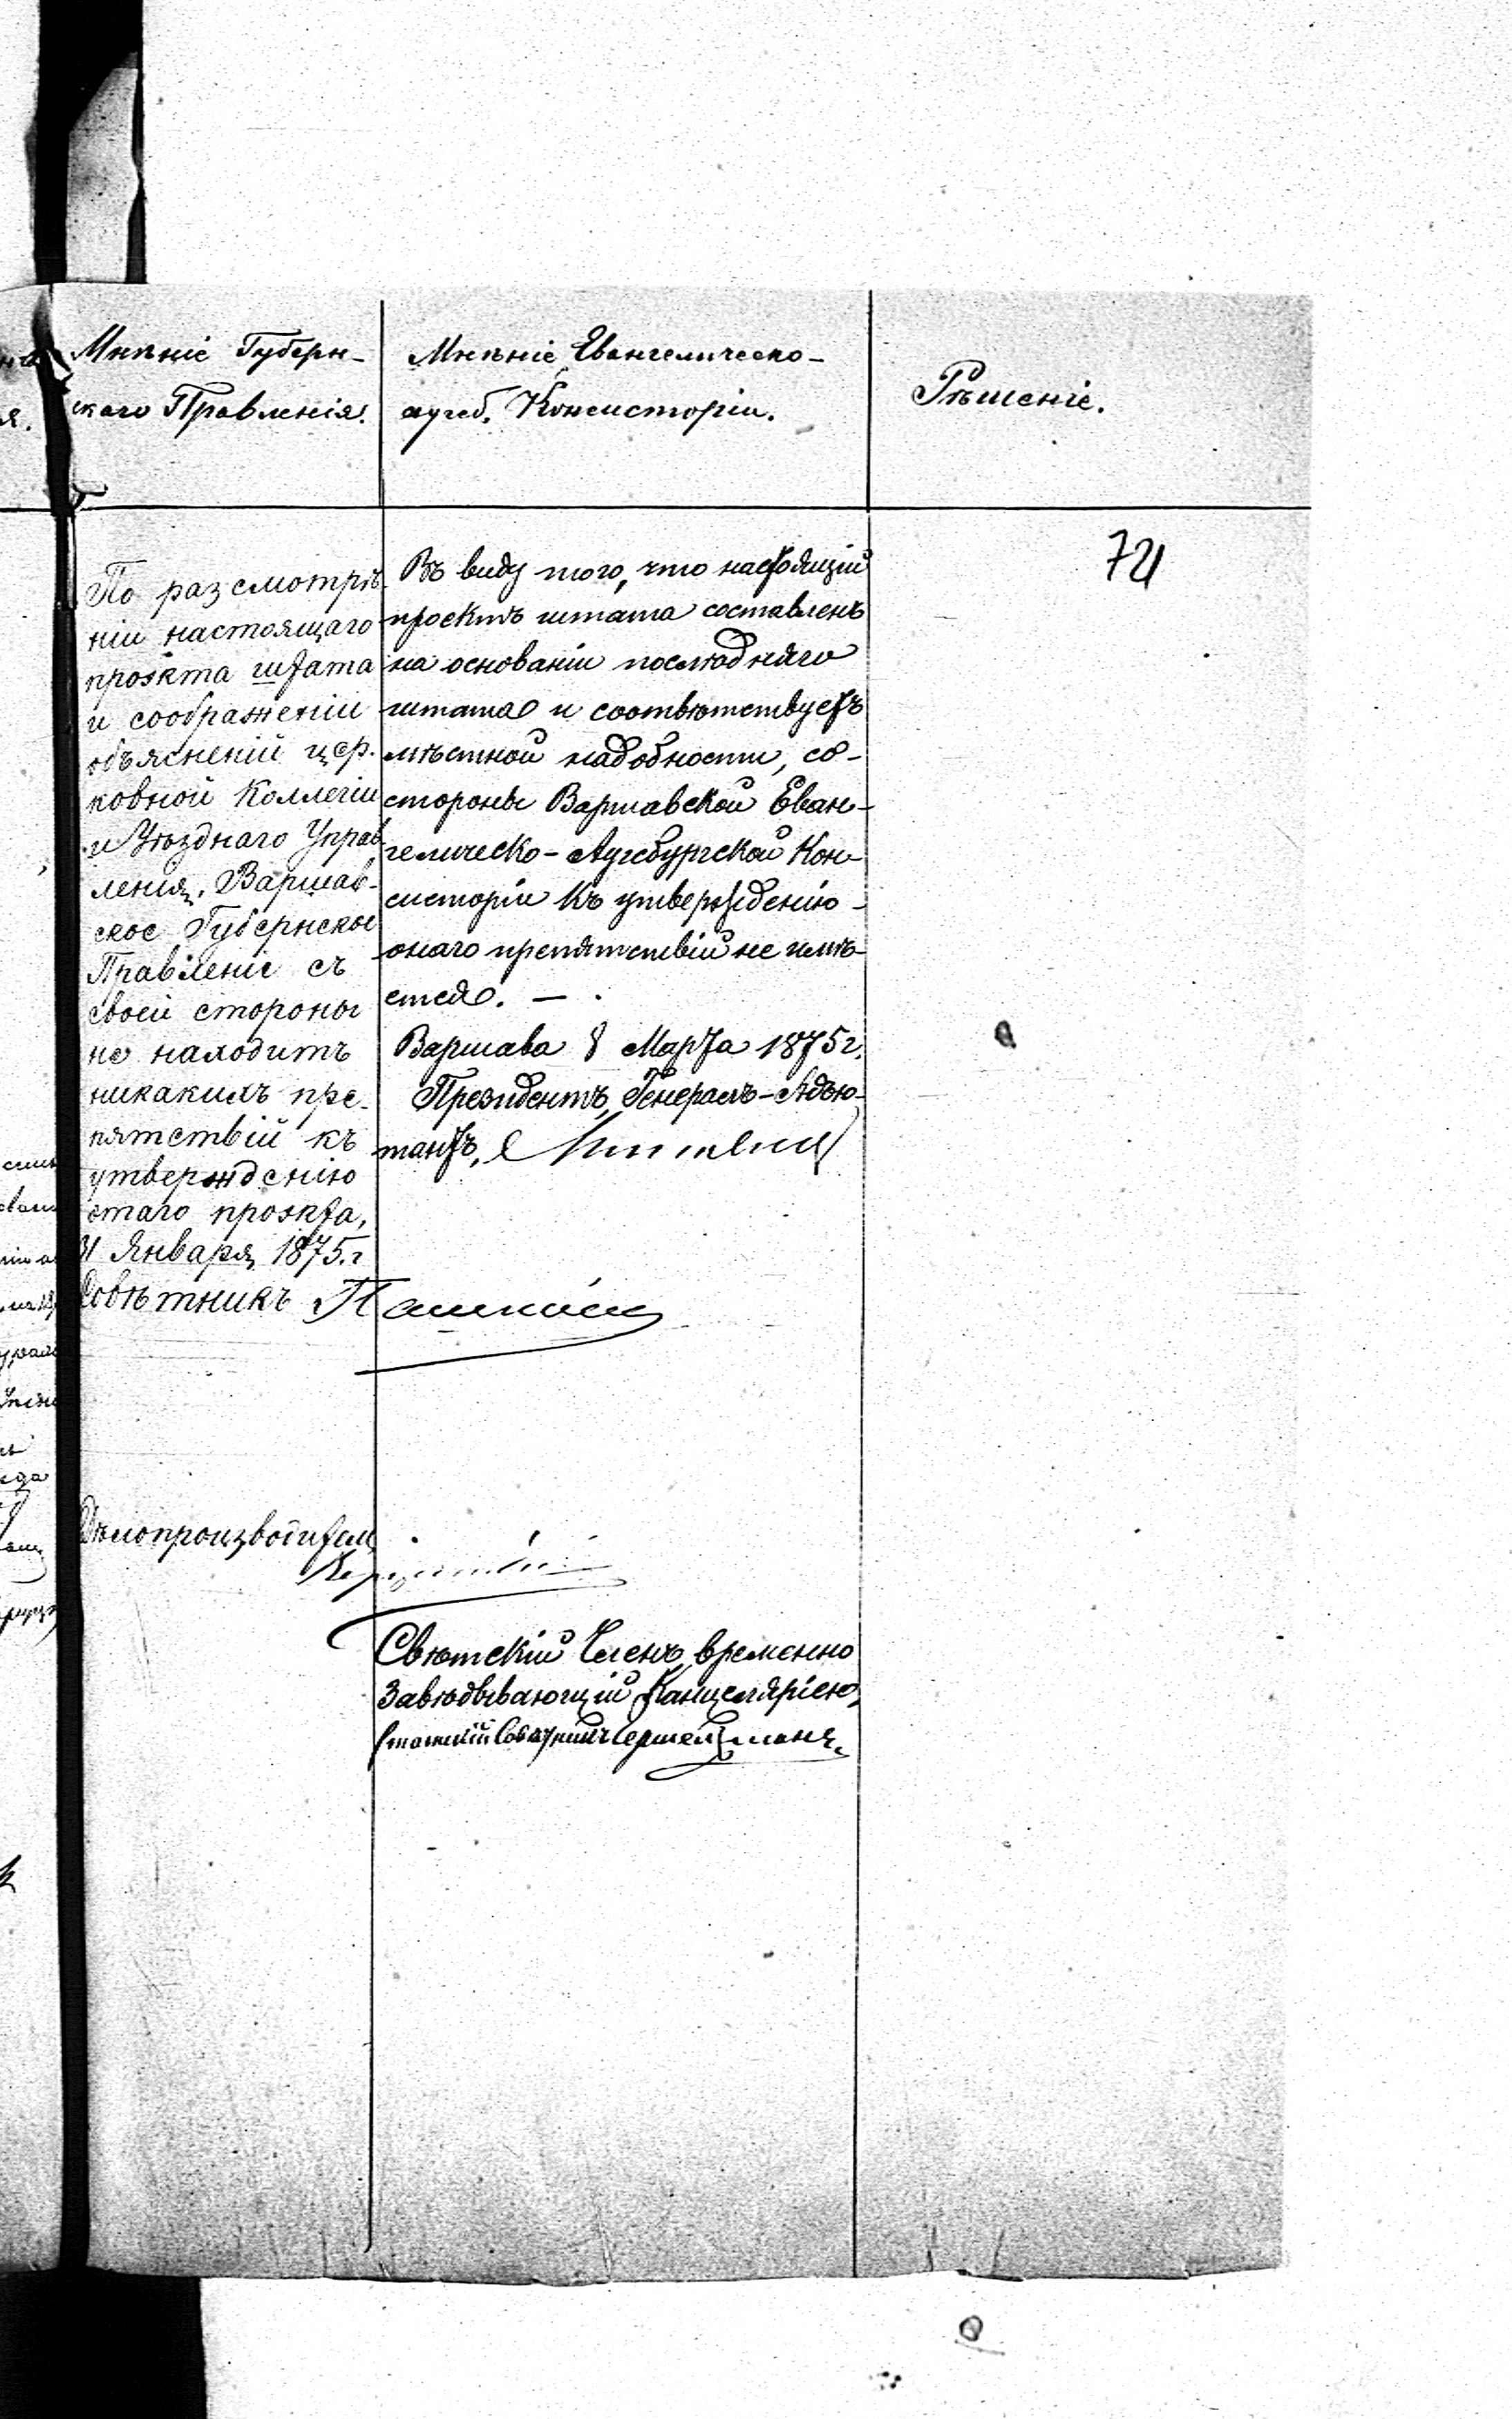 Мнѣніе Губерн-
скаго Правленія.
По разсмотрѣ-
ніи настоящаго
проэкта штата
и соображеніи
объясненій цер-
ковной Коллегіи
и Уѣзднаго Управ-
ленія, Варшав-
ское Губернское
Правленіе съ
своей стороны
не находитъ
никакихъ пре-
пятствій къ
утвержденію
этаго проэкта,
31 Января 1875.г
Совѣтникъ
Дѣлопроизводитель
Мнѣніе Евангелическо-
аугсб. Консисторіи.
Въ виду того, что настоящій
проектъ штата составленъ
на основаніи послѣдняго
штата и соотвѣтствуетъ
мѣстной надобности, со-
стороны Варшавской Еван-
гелическо-Аугсбургской Кон-
систоріи къ утвержденію-
онаго препятствій не имѣ-
ется. —.
Варшава 8 Марта 1875 г.
Президентъ, Генералъ-Адъю-
тантъ,
Свѣтскій Членъ, временно
Завѣдывающій Канцеляріею,
Статскій Совѣтникъ
Рѣшеніе.
721